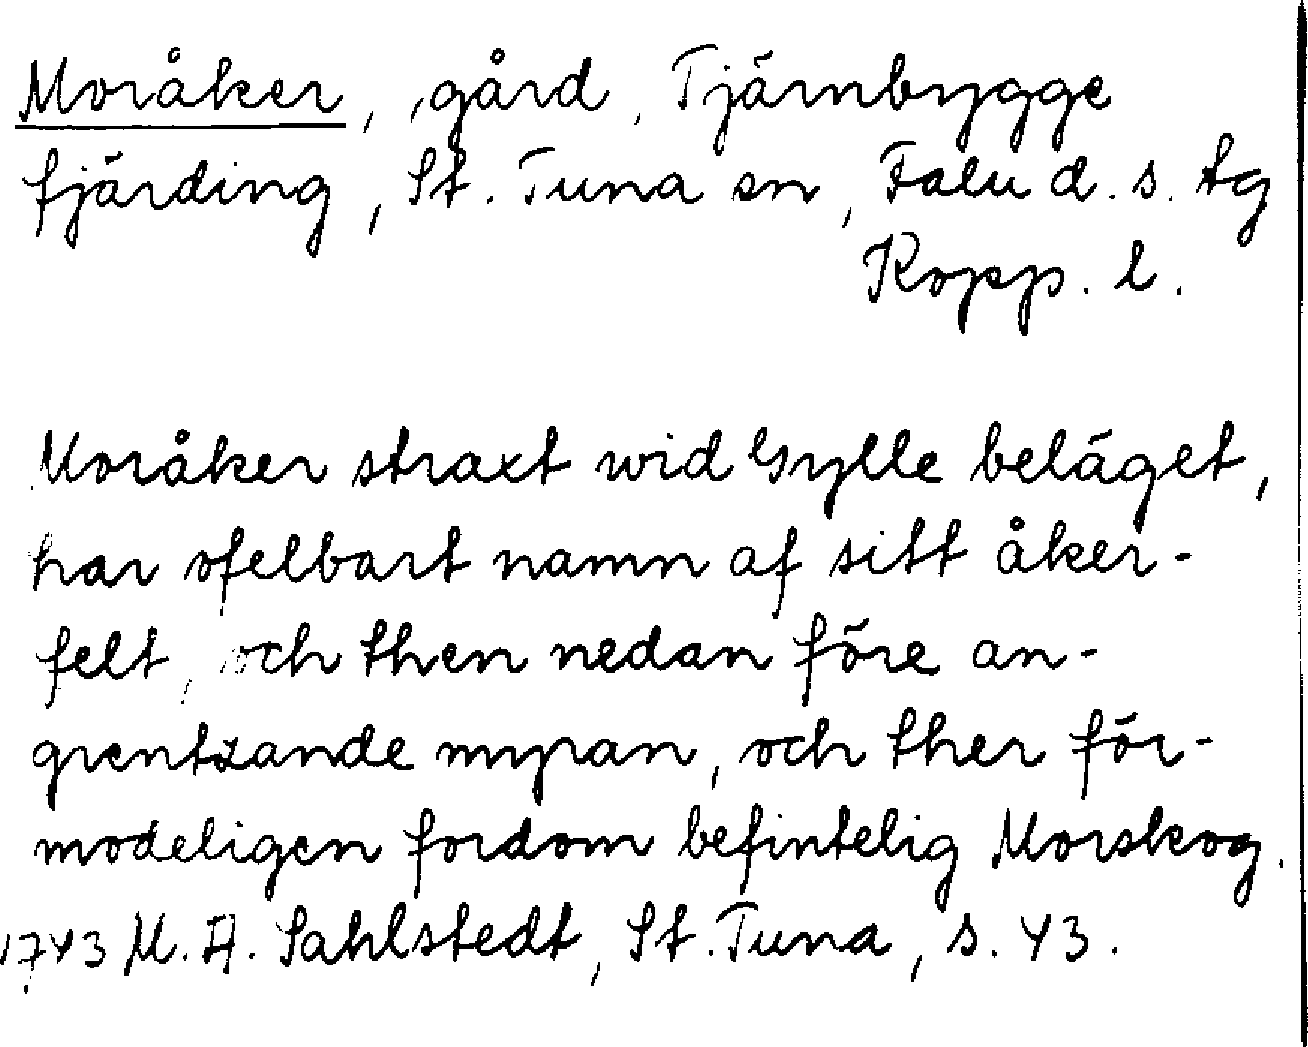 Moråker, gård, Tjärnbygge
fjärding, St. Tuna sn, Falu d. s. tg
Kopp. l.
Moråker straxt wid Gylle beläget,
har ofelbart namn af sitt åker-
felt, och then nedan före an-
grentzande myran, och ther för-
modeligen fordom befintelig Morskog.
1743 M. A. Sahlstedt, St. Tuna, s. 43.